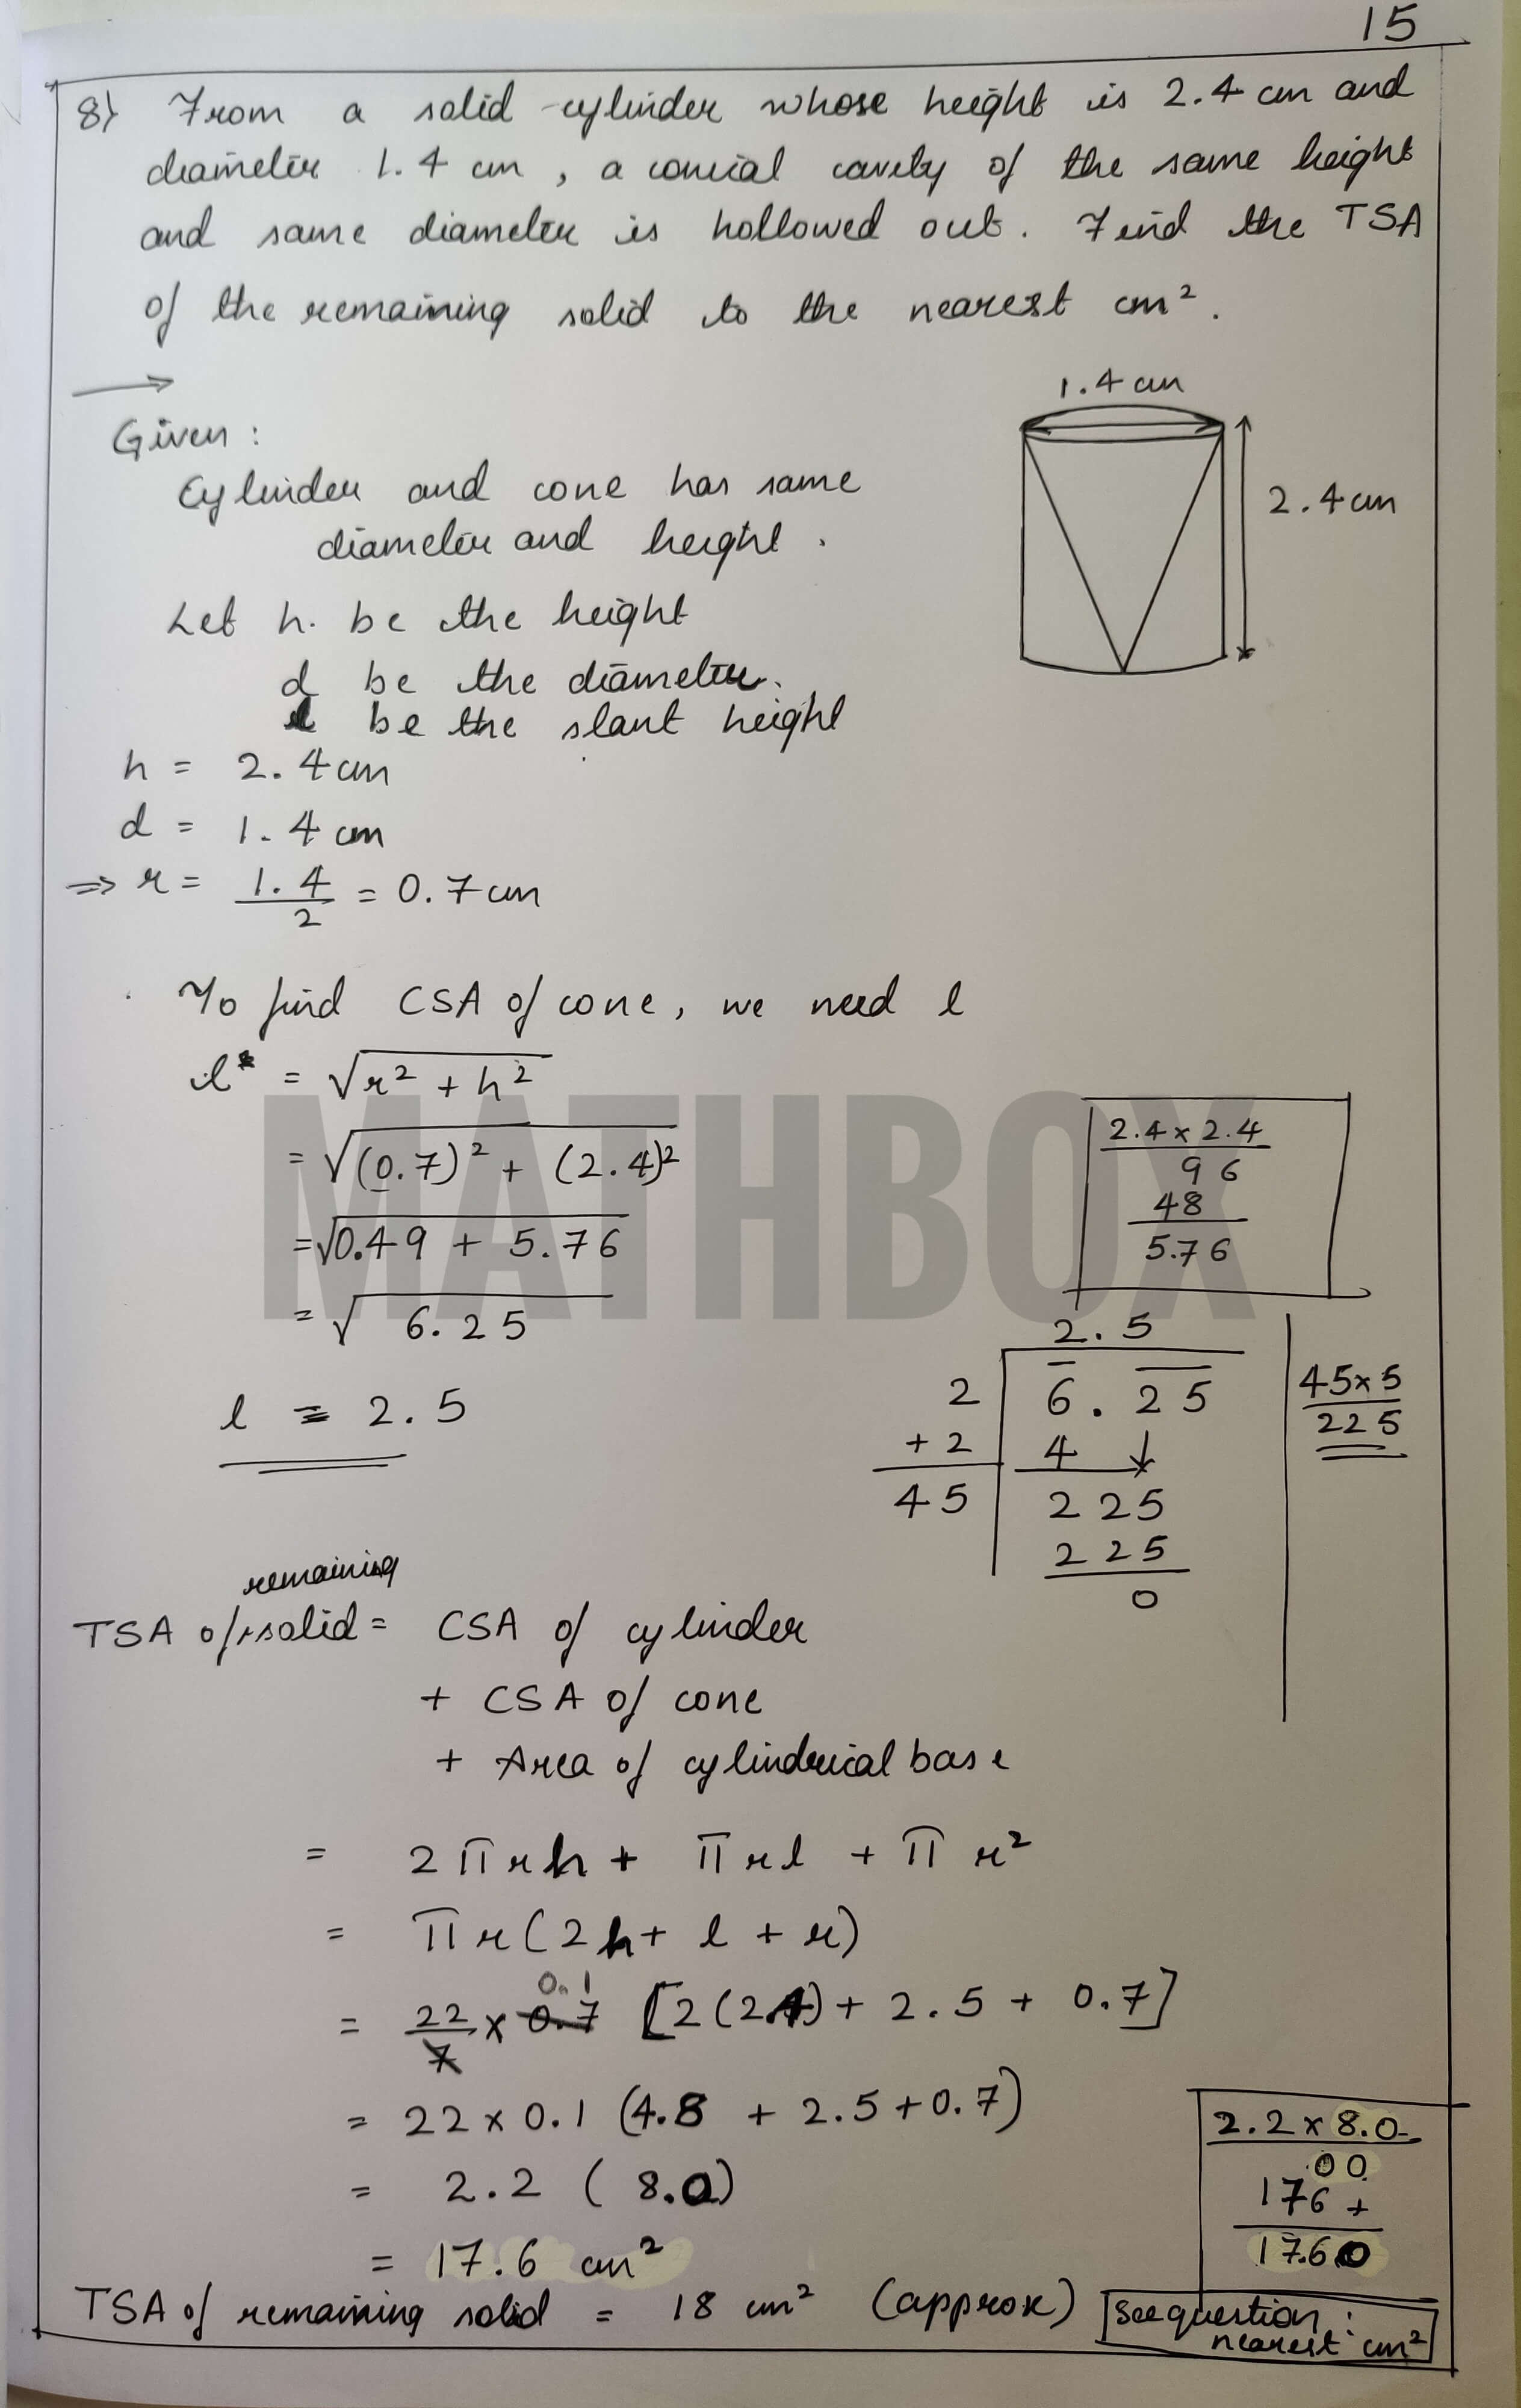 15
8) From a solid cylinder whose height is 2.4 cm and
diameter 1.4 cm, a conical cavity of the same height
and same diameter is hollowed out. Find the TSA
of the remaining solid to the nearest cm².
→
1.4 cm
2.4 cm
Given:
Cylinder and cone has same
diameter and height.
Let h. be the height
d be the diameter.
l be the slant height
h = 2.4 cm
d = 1.4 cm
⇒ r = 1.4/2 = 0.7 cm
To find CSA of cone, we need l
l = √(r² + h²)
= √((0.7)² + (2.4)²)
= √(0.49 + 5.76)
= √(6.25)
l = 2.5
MATHBOX
2.4 × 2.4
96
48
5.76
2.5
2 6.25
+2 4 ↓
45 225
225
0
45×5
225
TSA of remaining solid = CSA of cylinder
+ CSA of cone
+ Area of cylindrical base
= 2πrh + πrl + πr²
= πr(2h + l + r)
= 22/7 × 0.7 [2(2.4) + 2.5 + 0.7]
0.1
= 22 × 0.1 (4.8 + 2.5 + 0.7)
= 2.2 (8.0)
= 17.6 cm²
2.2 × 8.0
00
176+
17.60
TSA of remaining solid = 18 cm² (approx)
See question:
nearest cm²